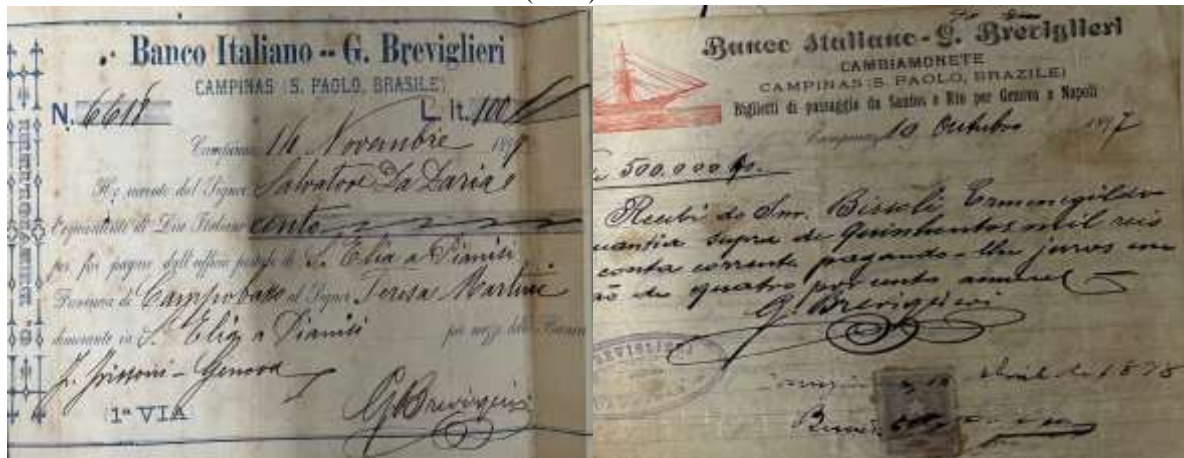 Banco Italiano -- G. Breviglieri
CAMPINAS (S. PAOLO, BRASILE)
N. 6618 L. It. 100
Campinas 14 Novembre 189
Ho avuto del Signor Salvatore
Equivalente di Lire Italiane cento
per far pagare dall'ufficio postale di S. Elia a Pianisi
Provincia di Campobasso al Signor Teresa Martino
dimorante in S. Elia a Pianisi per mezzo della
Genova
1ª VIA
G. Breviglieri
Banco Italiano - G. Breviglieri
CAMBIAMONETE
CAMPINAS (S. PAOLO, BRAZILE)
Biglietti di passaggio da Santos e Rio per Genova a Napoli
Campinas 10 Outubro 1897
500.000
Recebi do Snr. Bissoli Ermenegildo
quantia supra de quinhentos mil reis
conta corrente pagando-lhe juros em
ão de quatro por cento annuel
G. Breviglieri
BREVIGLIERI
abril de 1898